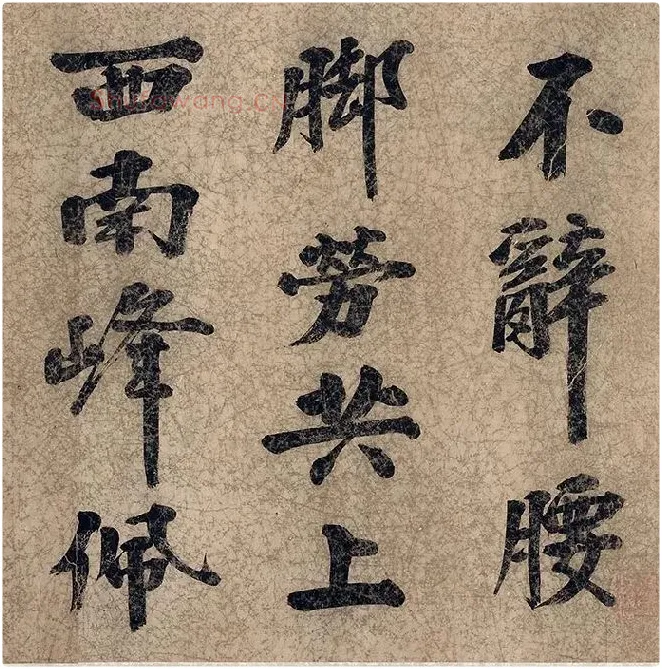 不辭腰
脚劳共上
西南峰佩
shufawang.cn